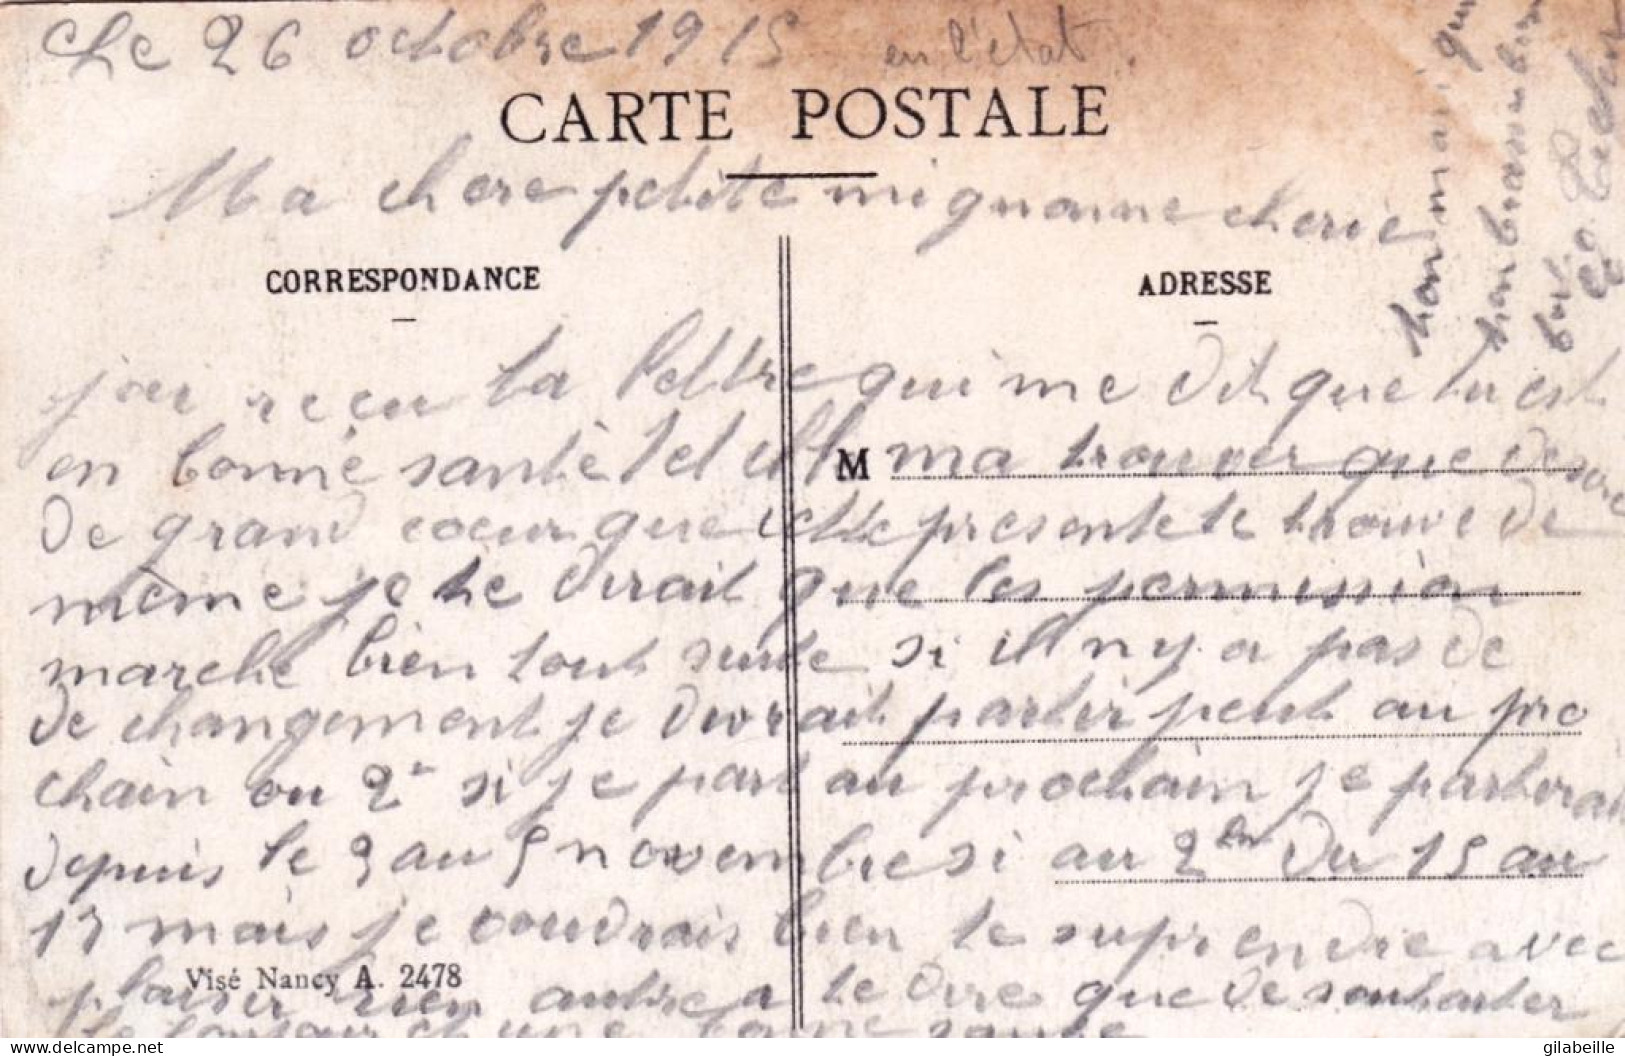 Le 26 octobre 1915 en l'état.
CARTE POSTALE
Ma chere petite mignonne cherie
CORRESPONDANCE
ADRESSE
j'ai recu ta lettre qui me dit que tu est
en bonne santé elle
M
ma trouver que desire
de grand coeur que cette presente te trouve de
même je te dirait que les permission
marche bien tout suite si il n y a pas de
de changement je devrait partir peut au pro
chain ou 2e si je part au prochain je partirai
depuis le 3 au 5 novembre si au 2em du 15 au
17 mais je voudrais bien te suprendre avec
Visé Nancy A. 2478
plaisir rien autre a te dire que de souhaiter
le bonjour et une bonne santé
ton mari qui
ton
Delcampe.net
gilabeille